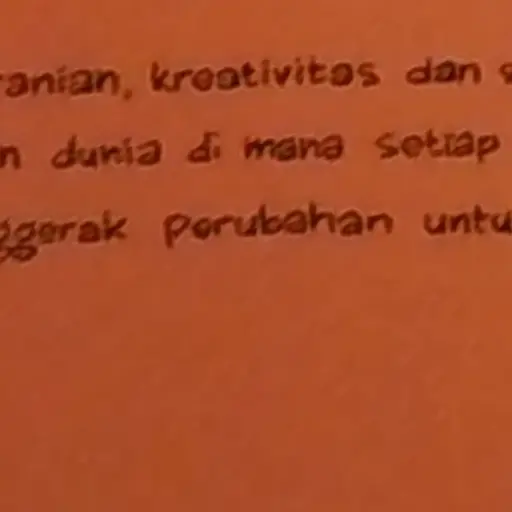 ranian, kreativitas dan s
n dunia di mana setiap
ggerak perubahan untu